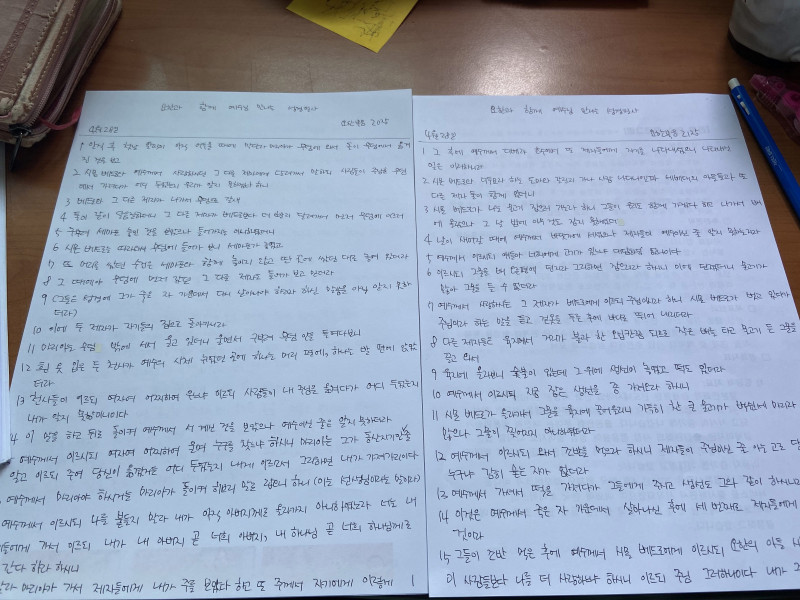 요한과 함께 예수님 만나는 말씀필사
4월 28일 요한복음 20장
1 안식 후 첫날 일찍이 아직 어두울 때에 막달라 마리아가 무덤에 와서 돌이 무덤에서 옮겨
진 것을 보고
2 시몬 베드로와 예수께서 사랑하시던 그 다른 제자에게 달려가서 말하되 사람들이 주님을 무덤
에서 가져다가 어디 두었는지 우리가 알지 못하겠다 하니
3 베드로와 그 다른 제자가 나가서 무덤으로 갈새
4 둘이 같이 달음질하더니 그 다른 제자가 베드로보다 더 빨리 달려가서 먼저 무덤에 이르러
5 구부려 세마포 놓인 것을 보았으나 들어가지는 아니하였더니
6 시몬 베드로는 따라와서 무덤에 들어가 보니 세마포가 놓였고
7 또 머리를 쌌던 수건은 세마포와 함께 놓이지 않고 딴 곳에 쌌던 대로 놓여 있더라
8 그 때에야 무덤에 먼저 갔던 그 다른 제자도 들어가 보고 믿더라
9 (그들은 성경에 그가 죽은 자 가운데서 다시 살아나야 하리라 하신 말씀을 아직 알지 못하
더라)
10 이에 두 제자가 자기들의 집으로 돌아가니라
11 마리아는 무덤 밖에 서서 울고 있더니 울면서 구부려 무덤 안을 들여다보니
12 흰 옷 입은 두 천사가 예수의 시체 뉘었던 곳에 하나는 머리 편에, 하나는 발 편에 앉았
더라
13 천사들이 이르되 여자여 어찌하여 우느냐 이르되 사람들이 내 주님을 옮겨다가 어디 두었는지
내가 알지 못함이니이다
4 이 말을 하고 뒤로 돌이켜 예수께서 서 계신 것을 보았으나 예수이신 줄은 알지 못하더라
예수께서 이르시되 여자여 어찌하여 울며 누구를 찾느냐 하시니 마리아는 그가 동산지기인줄
알고 이르되 주여 당신이 옮겼거든 어디 두었는지 내게 이르소서 그리하면 내가 가져가리이다
예수께서 마리아야 하시거늘 마리아가 돌이켜 히브리 말로 랍오니 하니 (이는 선생님이라는 말이라)
예수께서 이르시되 나를 붙들지 말라 내가 아직 아버지께로 올라가지 아니하였노라 너는 내
들에게 가서 이르되 내가 내 아버지 곧 너희 아버지, 내 하나님 곧 너희 하나님께로
간다 하라 하시니
마리아가 가서 제자들에게 내가 주를 보았다 하고 또 주께서 자기에게 이렇게
요한과 함께 예수님 만나는 말씀필사
4월 28일 요한복음 21장
1 그 후에 예수께서 디베랴 호수에서 또 제자들에게 자기를 나타내셨으니 나타내신
일은 이러하니라
2 시몬 베드로와 디두모라 하는 도마와 갈릴리 가나 사람 나다나엘과 세베대의 아들들과 또
다른 제자 둘이 함께 있더니
3 시몬 베드로가 나는 물고기 잡으러 가노라 하니 그들이 우리도 함께 가겠다 하고 나가서 배
에 올랐으나 그 날 밤에 아무 것도 잡지 못하였더니
4 날이 새어갈 때에 예수께서 바닷가에 서셨으나 제자들이 예수이신 줄 알지 못하는지라
5 예수께서 이르시되 얘들아 너희에게 고기가 있느냐 대답하되 없나이다
6 이르시되 그물을 배 오른편에 던지라 그리하면 잡으리라 하시니 이에 던졌더니 물고기가
많아 그물을 들 수 없더라
7 예수께서 사랑하시는 그 제자가 베드로에게 이르되 주님이시라 하니 시몬 베드로가 벗고 있다가
주님이라 하는 말을 듣고 겉옷을 두른 후에 바다로 뛰어 내리더라
8 다른 제자들은 육지에서 거리가 불과 한 오십칸쯤 되므로 작은 배를 타고 물고기 든 그물을
끌고 와서
9 육지에 올라보니 숯불이 있는데 그 위에 생선이 놓였고 떡도 있더라
10 예수께서 이르시되 지금 잡은 생선을 좀 가져오라 하시니
11 시몬 베드로가 올라가서 그물을 육지에 끌어올리니 가득히 찬 큰 물고기가 백쉰세 마리라
많으나 그물이 찢어지지 아니하였더라
12 예수께서 이르시되 와서 조반을 먹으라 하시니 제자들이 주님이신 줄 아는 고로 당
누구냐 감히 묻는 자가 없더라
13 예수께서 가셔서 떡을 가져다가 그들에게 주시고 생선도 그와 같이 하시니라
14 이것은 예수께서 죽은 자 가운데서 살아나신 후에 세 번째로 제자들에게
것이라
15 그들이 조반 먹은 후에 예수께서 시몬 베드로에게 이르시되 요한의 아들 시
이 사람들보다 나를 더 사랑하느냐 하시니 이르되 주님 그러하나이다 내가